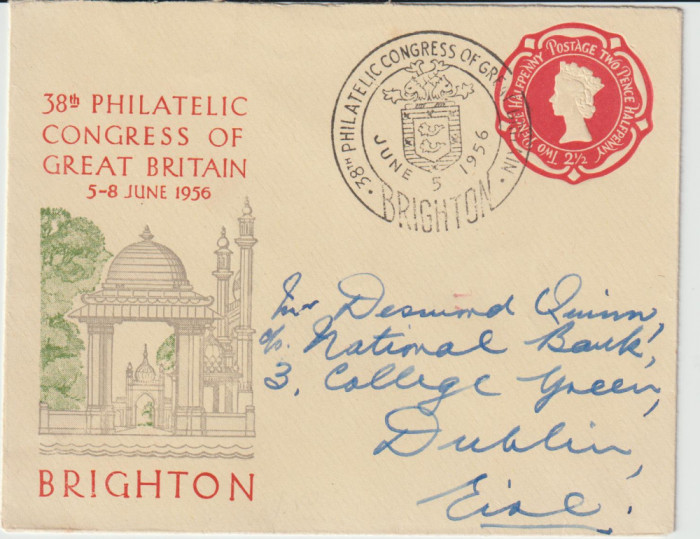 38th PHILATELIC
CONGRESS OF
GREAT BRITAIN
5-8 JUNE 1956
BRIGHTON
· 38TH PHILATELIC CONGRESS OF GREAT BRITAIN ·
JUNE 5 1956
BRIGHTON
POSTAGE TWO PENCE HALFPENNY
TWO PENCE HALFPENNY
2½
Mr Desmond Quinn,
c/o. National Bank,
3, College Green,
Dublin,
Eire.